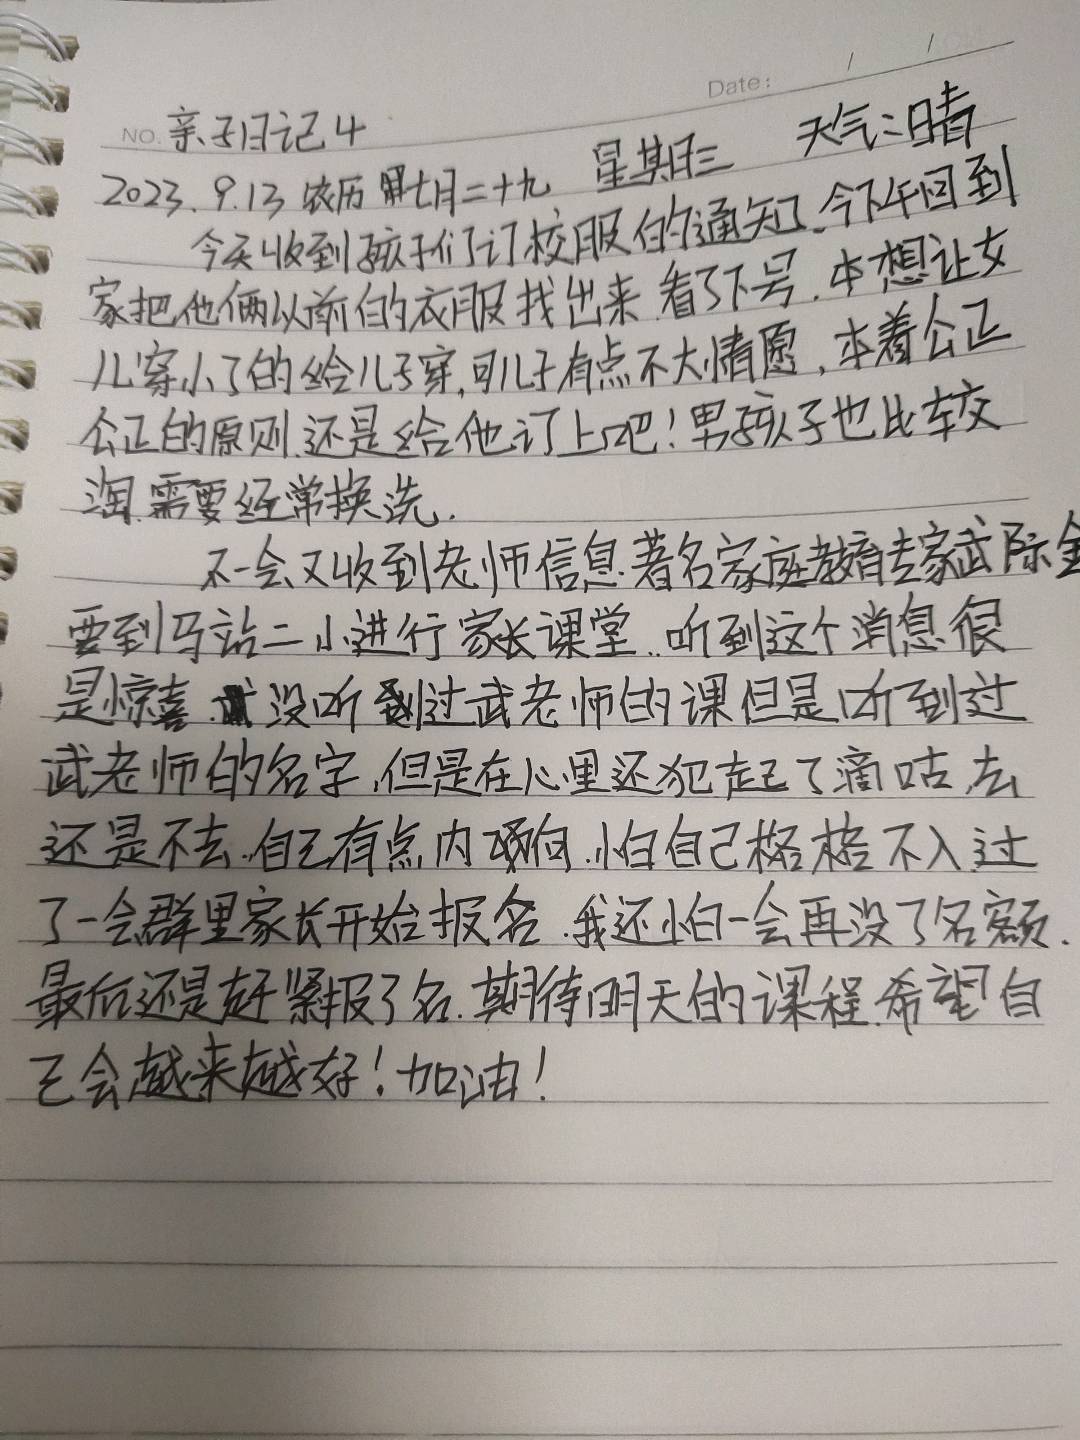 Date: / /
NO. 亲子日记4
2023.9.13 农历 七月二十九 星期三 天气:晴
今天收到孩子们订校服的通知.今下午回到
家把他俩以前的衣服找出来.看了下号.本想让女
儿穿小了的给儿子穿,可儿子有点不大情愿,本着公正
公正的原则.还是给他订上吧!男孩子也比较
淘.需要经常换洗.
不一会又收到老师信息.著名家庭教育专家武际金
要到马站二小进行家长课堂..听到这个消息很
是惊喜.没听到过武老师的课但是听到过
武老师的名字,但是在心里还犯起了滴咕,去
还是不去.自己有点内向.怕自己格格不入.过
了一会群里家长开始报名.我还怕一会再没了名额.
最后还是赶紧报了名.期待明天的课程.希望自
己会越来越好!加油!